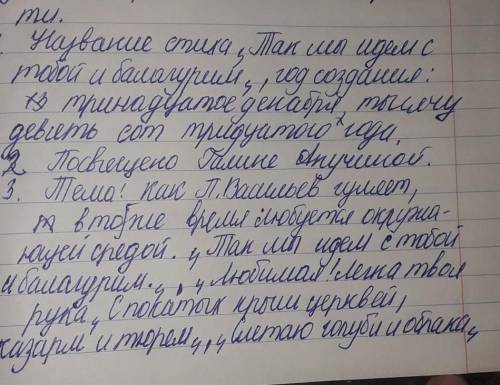 ти.
Название стиха „Так мы идем с
тобой и балагурим„, год создания:
тринадцатое декабря тысячу
девять сот тридцатого года.
2 Посвещено Галине Анучиной.
3. Тема: Как П. Васильев гуляет,
в тоже время любуется окружа-
ющей средой. „Так мы идем с тобой
и балагурим.„, „Любимая! Легка твоя
рука„ С покатых крыш церквей,
казарм и тюрем„, „Слетаю голуби и облака„